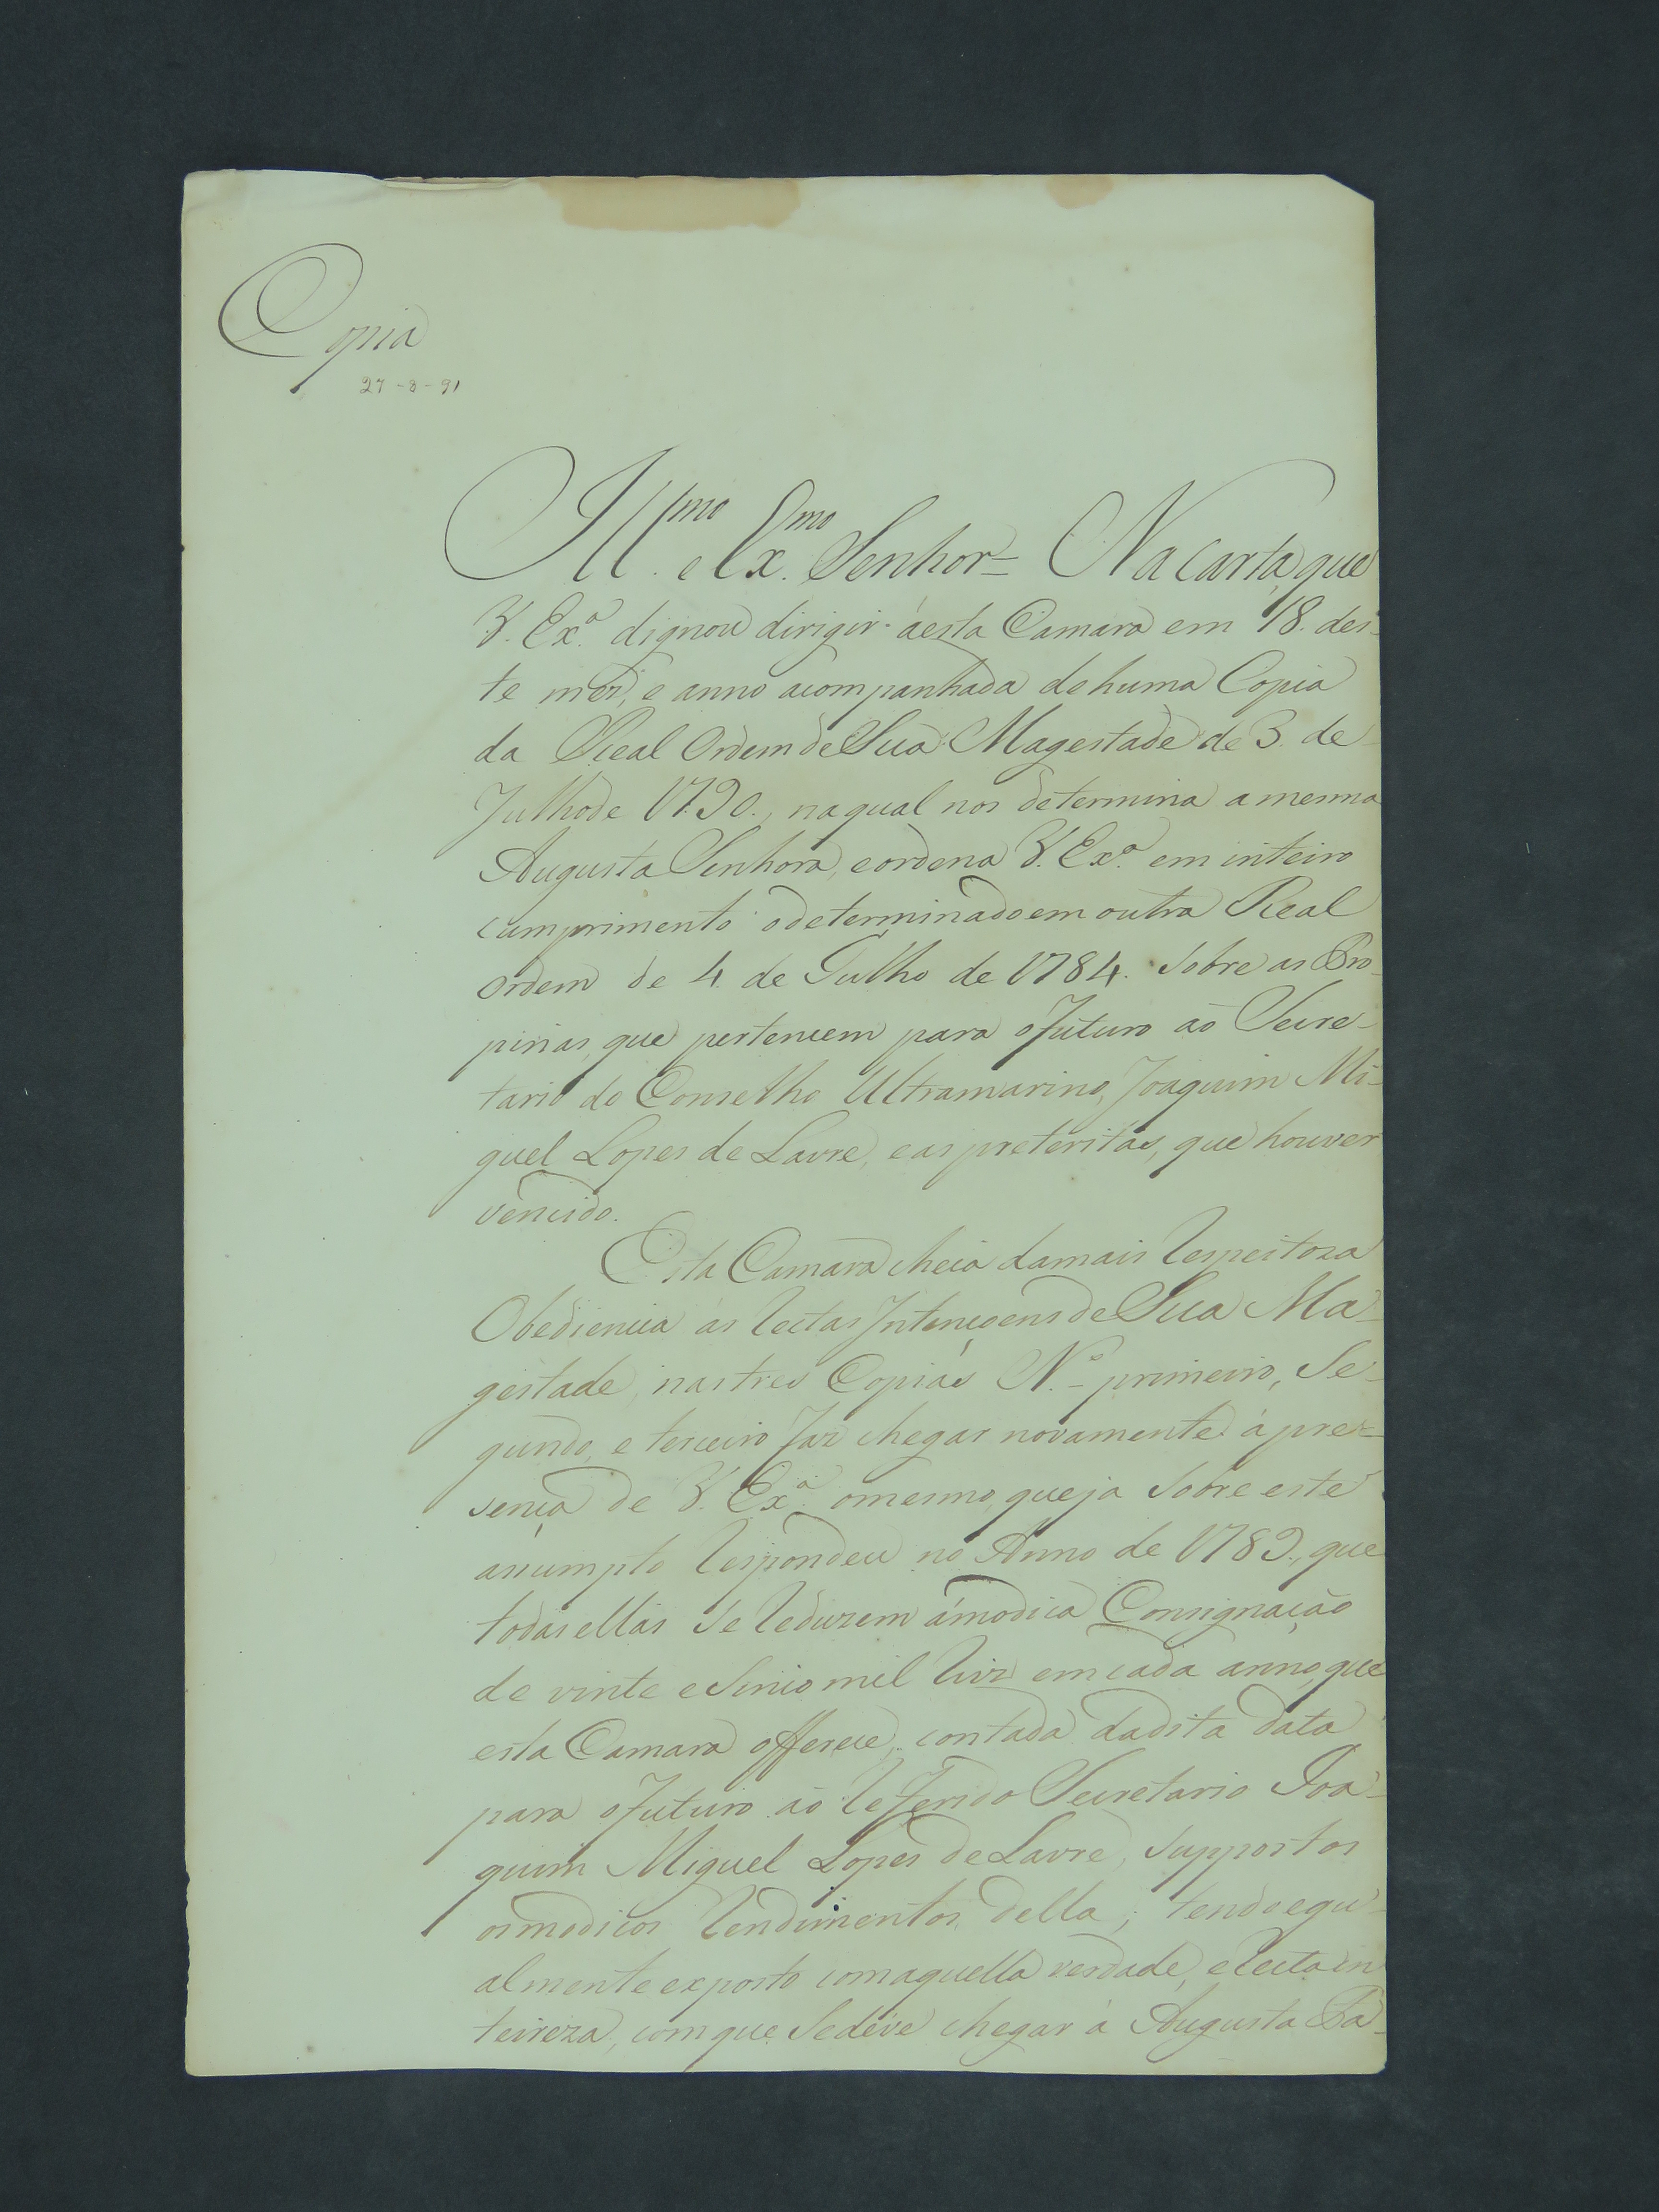 Copia
27-8-91
Ill.mo e Ex.mo Senhor = Na carta, que
V. Ex.a dignou dirigir áesta Camara em 18. des-
te mez, e anno acompanhada de huma Copia
da Real Ordem de Sua Magestade de 3. de
Julho de 1790., na qual nos determina a mesma
Augusta Senhora, e ordena V. Ex.a em inteiro
cumprimento o determinado em outra Real
Ordem de 4. de Julho de 1784. Sobre as Pro-
pinas, que pertencem para o futuro ao Secre-
tario do Conselho Ultramarino, Joaquim Mi-
guel Lopes de Lavre, e as preteritas, que houver
vencido.
Esta Camara cheia da mais respeitoza
Obediencia ás rectas Intençoens de Sua Ma-
gestade, nas tres Copias N.o - primeiro, Se-
gundo, e terceiro faz chegar novamente á pre-
sença de V. Ex.a o mesmo, que ja Sobre este
assumpto respondeu no Anno de 1789., que
todas ellas Se reduzem ámodica Consignação
de vinte e Sinco mil reis em cada anno, que
esta Camara offerece, contada da dita data
para o futuro ao referido Secretario Joa-
quim Miguel Lopes de Lavre, Suppostos
os modicos rendimentos della; tendo egu-
almente exposto com aquella verdade, e recta in
teireza, com que Se deve chegar á Augusta Pa-